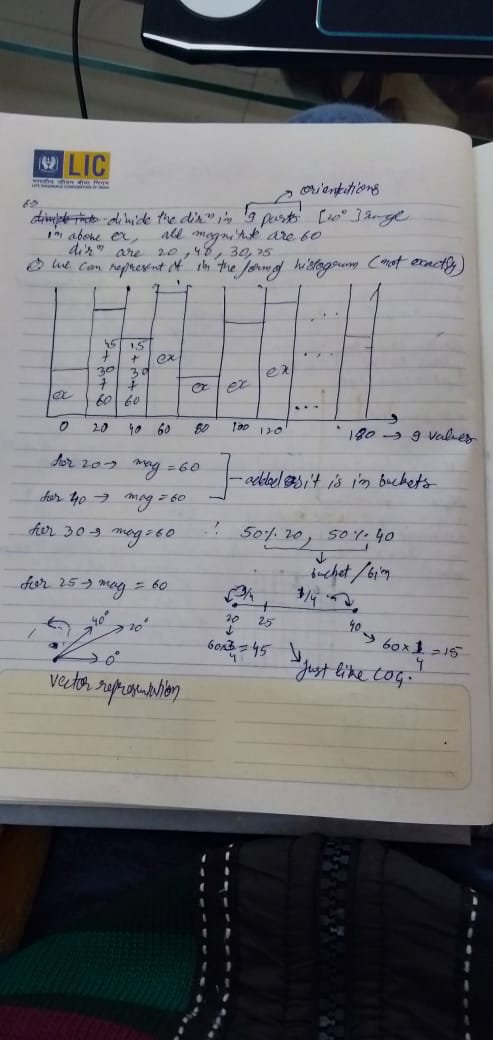 LIC
भारतीय जीवन बीमा निगम
LIFE INSURANCE CORPORATION OF INDIA
→ orientations
divide the dirⁿ in 9 parts [20° ] range
in above ex, all magnitute are 60
dirⁿ are 20, 40, 30, 25
we can represent it in the form of histogram (not exactly)
45 15
+ + ex
30 30
ex + + ex ex ex
60 60
0 20 40 60 80 100 120 180 → 9 values
for 20 → mag = 60
added as it is in buckets
for 40 → mag = 60
for 30 → mag = 60 ∴ 50% 20, 50% 40
bucket / bin
for 25 → mag = 60 3/4 1/4
20 25 40
60 x 3/4 = 45 60 x 1/4 = 15
40° 20°
0°
Just like COG.
vector representation